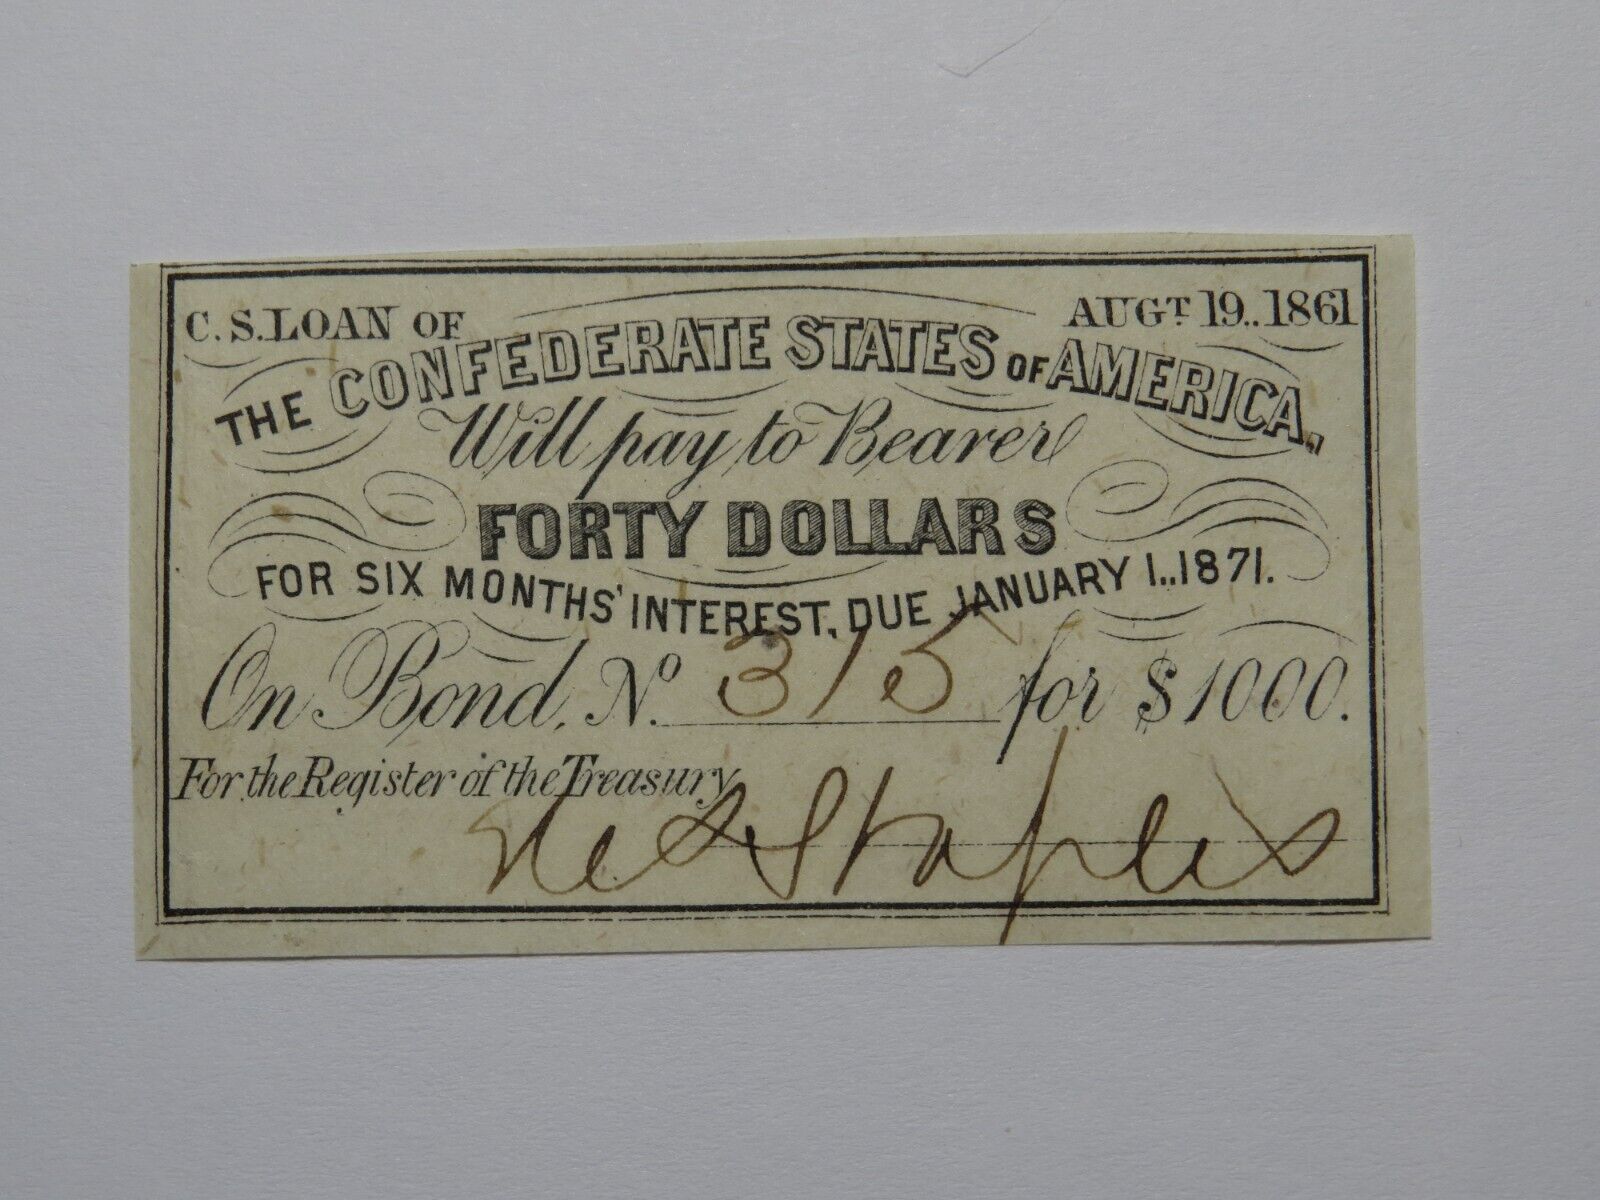 C. S. LOAN OF AUGT. 19.. 1861
THE CONFEDERATE STATES OF AMERICA,
Will pay to Bearer
FORTY DOLLARS
FOR SIX MONTHS' INTEREST, DUE JANUARY 1..1871.
On Bond, No. 315 for $1000.
For the Register of the Treasury
Staples